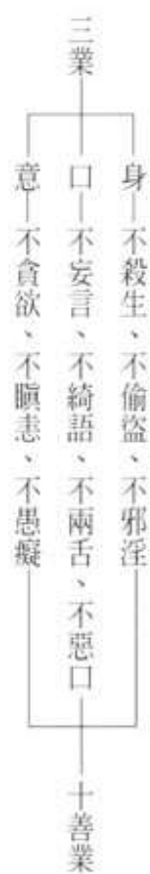 三業
身—不殺生、不偷盜、不邪淫
口—不妄言、不綺語、不兩舌、不惡口
意—不貪欲、不瞋恚、不愚癡
十善業